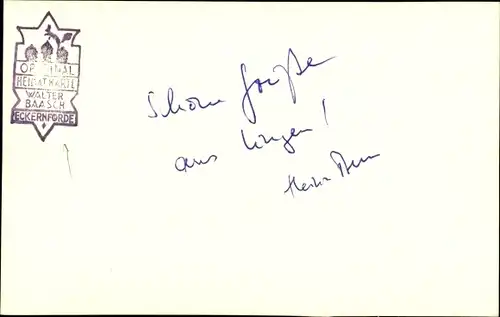 ORIGINAL
HEIMATKARTE
WALTER
BAASCH
ECKERNFÖRDE
Schöne Grüße
aus Lingen!